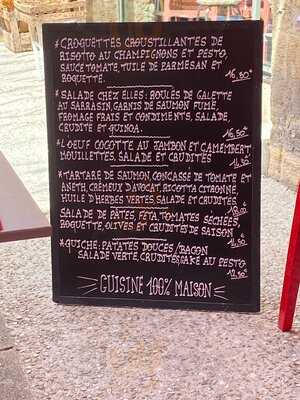 *CROQUETTES CROUSTILLANTES DE
RISOTTO AU CHAMPIGNONS ET PESTO,
SAUCE TOMATE, TUILE DE PARMESAN ET
ROQUETTE. 16,80€
*SALADE CHEZ ELLES: ROULÉS DE GALETTE
AU SARRASIN, GARNIS DE SAUMON FUMÉ,
FROMAGE FRAIS ET CONDIMENTS, SALADE,
CRUDITÉ ET QUINOA. 16,50€
*L'OEUF COCOTTE AU JAMBON ET CAMEMBERT
MOUILLETTES, SALADE ET CRUDITÉS
*TARTARE DE SAUMON, CONCASSÉ DE TOMATE ET
ANETH, CRÉMEUX D'AVOCAT, RICOTTA CITRONNÉ,
HUILE D'HERBES VERTES, SALADE ET CRUDITÉS
SALADE DE PÂTES, FETA, TOMATES SÉCHÉES,
ROQUETTE, OLIVES ET CRUDITÉS DE SAISON
*QUICHE: PATATES DOUCES/BACON
SALADE VERTE, CRUDITÉS, CAKE AU PESTO
12,50€
CUISINE 100% MAISON